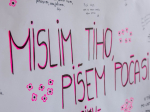 MISLIM TIHO,
PIŠEM POČASI